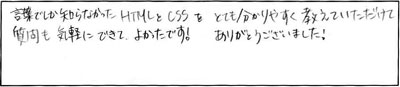 言葉でしか知らなかったHTMLとCSSを とても分かりやすく教えていただけて
質問も気軽にできて、よかったです! ありがとうございました!